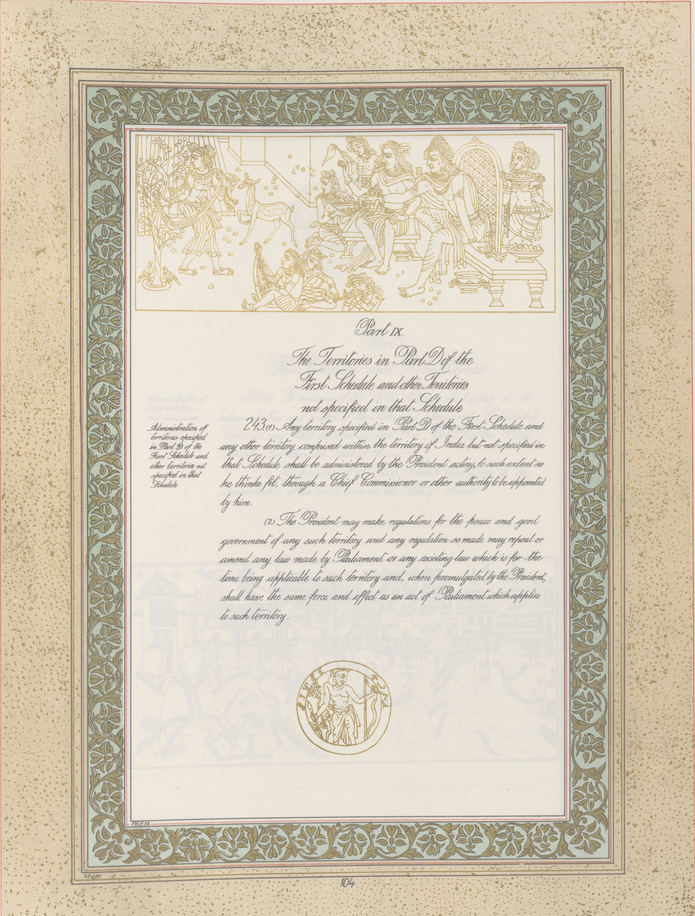 Part IX
The Territories in Part D of the
First Schedule and other Territories
not specified in that Schedule
Administration of
territories specified
in Part D of the
First Schedule and
other territories not
specified in that
Schedule.
243.(1) Any territory specified in Part D of the First Schedule and
any other territory comprised within the territory of India but not specified in
that Schedule shall be administered by the President acting, to such extent as
he thinks fit, through a Chief Commissioner or other authority to be appointed
by him.
(2) The President may make regulations for the peace and good
government of any such territory and any regulation so made may repeal or
amend any law made by Parliament or any existing law which is for the
time being applicable to such territory and, when promulgated by the President,
shall have the same force and effect as an act of Parliament which applies
to such territory.
PREM
104